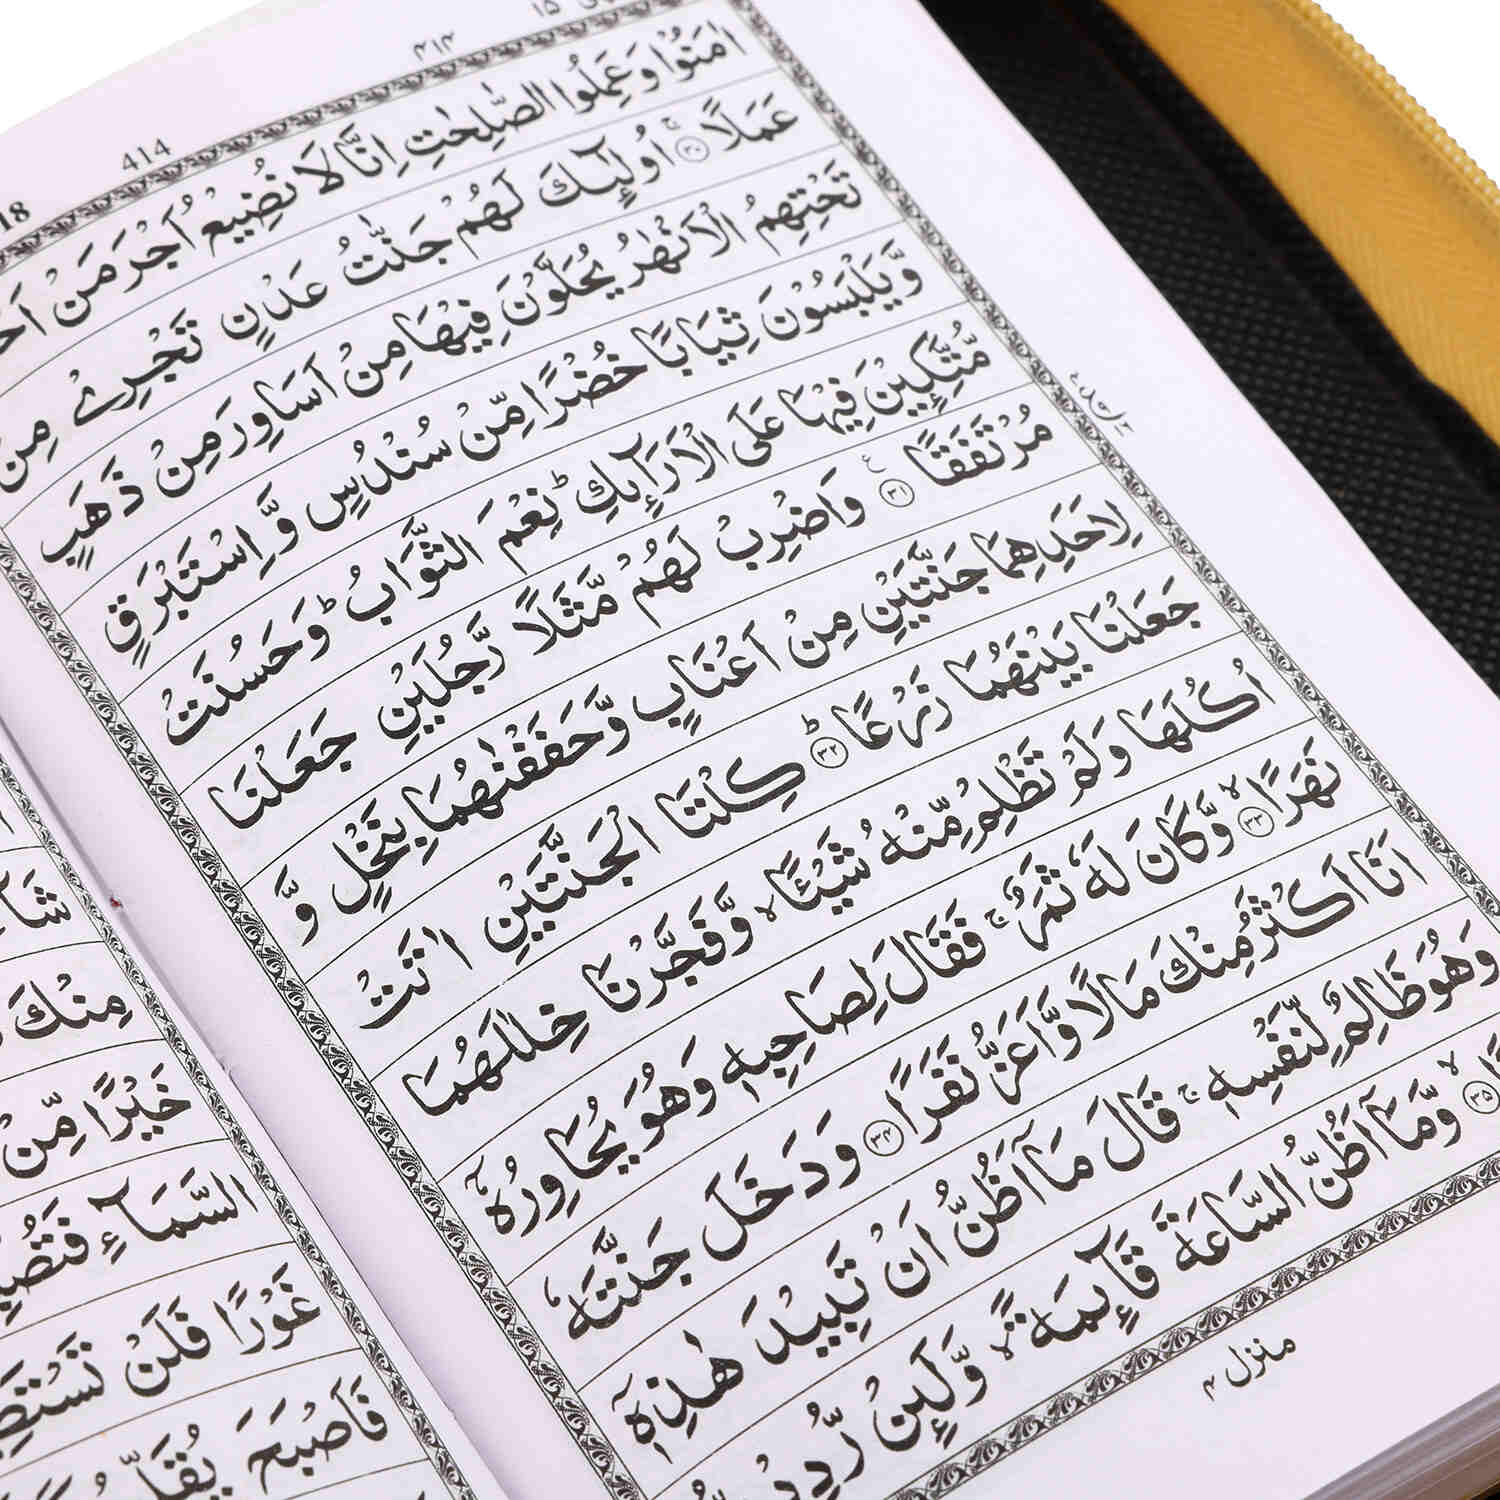 ۴۱۴
414
18
اٰمَنُوْا وَعَمِلُوا الصّٰلِحٰتِ اِنَّا لَا نُضِيْعُ اَجْرَ مَنْ
عَمَلًا ﴿۳۰﴾ اُولٰٓئِكَ لَهُمْ جَنّٰتُ عَدْنٍ تَجْرِيْ مِنْ
تَحْتِهِمُ الْاَنْهٰرُ يُحَلَّوْنَ فِيْهَا مِنْ اَسَاوِرَ مِنْ ذَهَبٍ
وَّيَلْبَسُوْنَ ثِيَابًا خُضْرًا مِّنْ سُنْدُسٍ وَّاِسْتَبْرَقٍ
مُّتَّكِـِٕيْنَ فِيْهَا عَلَى الْاَرَآئِكِ ؕ نِعْمَ الثَّوَابُ ؕ وَحَسُنَتْ
مُرْتَفَقًا ﴿۳۱﴾ وَاضْرِبْ لَهُمْ مَّثَلًا رَّجُلَيْنِ جَعَلْنَا
لِاَحَدِهِمَا جَنَّتَيْنِ مِنْ اَعْنَابٍ وَّحَفَفْنٰهُمَا بِنَخْلٍ وَّ
جَعَلْنَا بَيْنَهُمَا زَرْعًا ؕ ﴿۳۲﴾ كِلْتَا الْجَنَّتَيْنِ اٰتَتْ
اُكُلَهَا وَلَمْ تَظْلِمْ مِّنْهُ شَيْـًٔا ۙ وَّفَجَّرْنَا خِلٰلَهُمَا
نَهَرًا ۙ ﴿۳۳﴾ وَّكَانَ لَهٗ ثَمَرٌ ۚ فَقَالَ لِصَاحِبِهٖ وَهُوَ يُحَاوِرُهٗٓ
اَنَا اَكْثَرُ مِنْكَ مَالًا وَّاَعَزُّ نَفَرًا ﴿۳۴﴾ وَدَخَلَ جَنَّتَهٗ
وَهُوَ ظَالِمٌ لِّنَفْسِهٖ ۚ قَالَ مَآ اَظُنُّ اَنْ تَبِيْدَ هٰذِهٖٓ
﴿۳۵﴾ ۙ وَّمَآ اَظُنُّ السَّاعَةَ قَآئِمَةً ۙ وَّلَئِنْ رُّدِدْتُّ
منزل ۴
مِنْكَ
خَيْرًا مِّنْ
السَّمَآءِ
غَوْرًا فَلَنْ
فَاَصْبَحَ يُقَلِّبُ